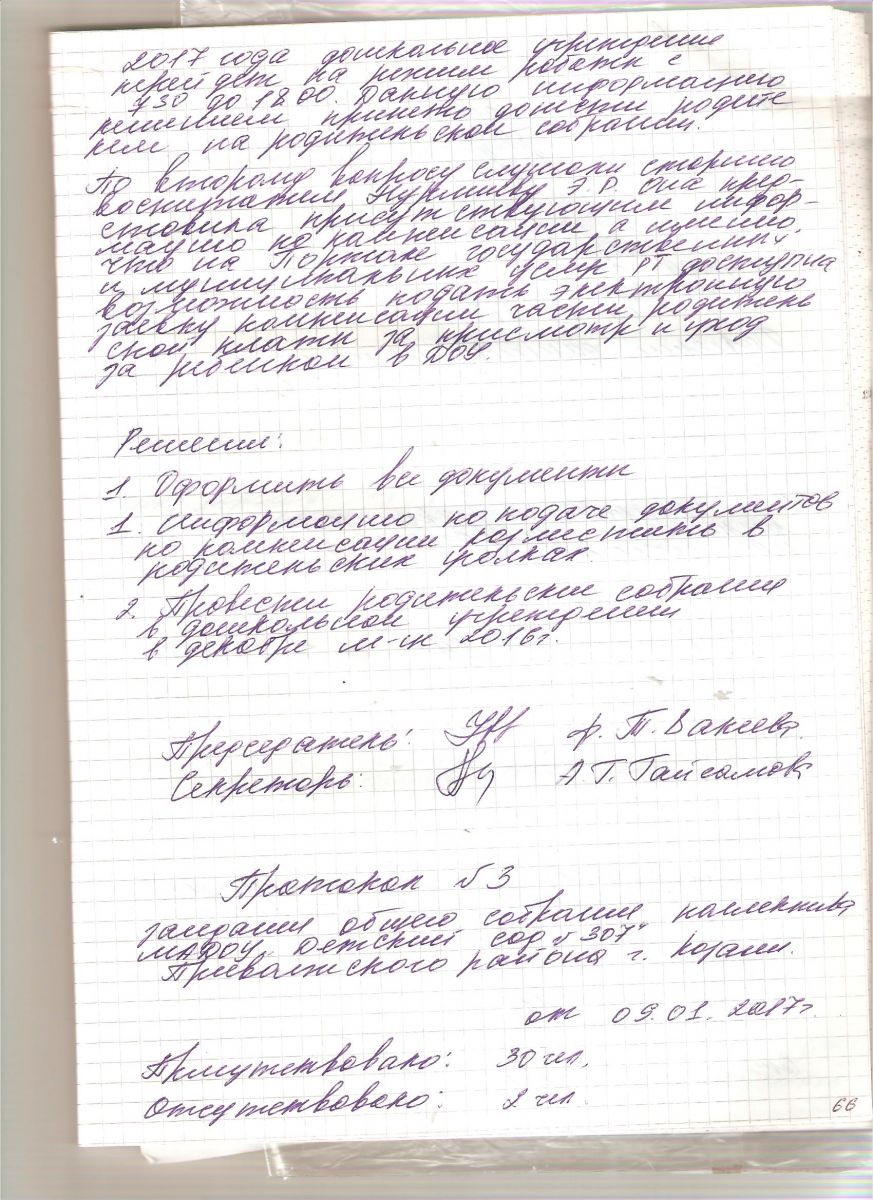 2017 года дошкольное учреждение
перейдет на режим работы с
7 30 до 18 00. Данную информацию
решением принято довести родите
лям на родительском собрании.
По второму вопросу слушали старшего
воспитателя Нурмиеву Э.Р. Она пред-
ставила присутствующим инфор-
мацию по компенсации а именно,
что на Портале государственных
и муниципальных услуг РТ доступна
возможность подать электронную
заявку компенсации части родитель
ской платы за присмотр и уход
за ребенком в ДОУ.
Решили:
1. Оформить все документы
1. Информацию по подаче документов
по компенсации разместить в
родительских уголках.
2. Провести родительские собрания
в дошкольном учреждении
в декабре м-це 2016г.
Председатель: Ф. Т. Вакеева.
Секретарь: А Г. Гайсамова
Протокол №3
заседания общего собрания коллектива
МАДОУ „Детский сад №307"
Приволжского района г. Казани.
от 09.01.2017г.
Присутствовало: 30 чел.
Отсутствовало: 2 чел.
66